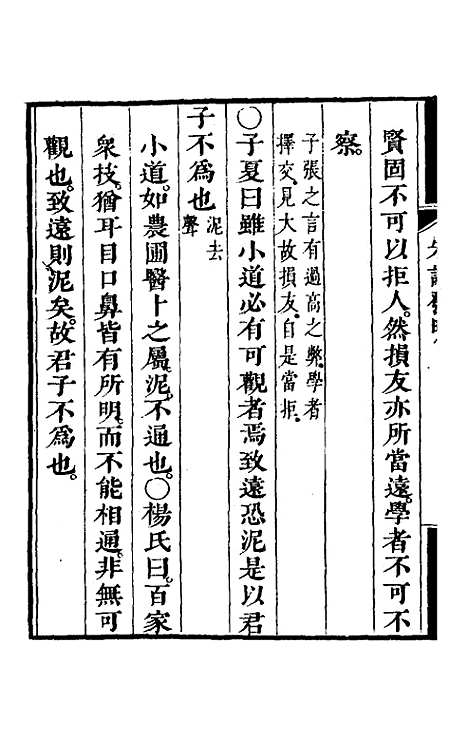 賢固不可以拒人。然損友亦所當遠。學者不可不
察。
子張之言有過高之弊。學者
擇交。見大故損友。自是當拒。
〇子夏曰雖小道必有可觀者焉致遠恐泥是以君
子不爲也泥去
聲
小道。如農圃醫卜之屬。泥。不通也。〇楊氏曰。百家
衆技。猶耳目口鼻。皆有所明。而不能相通。非無可
觀也。致遠則泥矣。故君子不爲也。